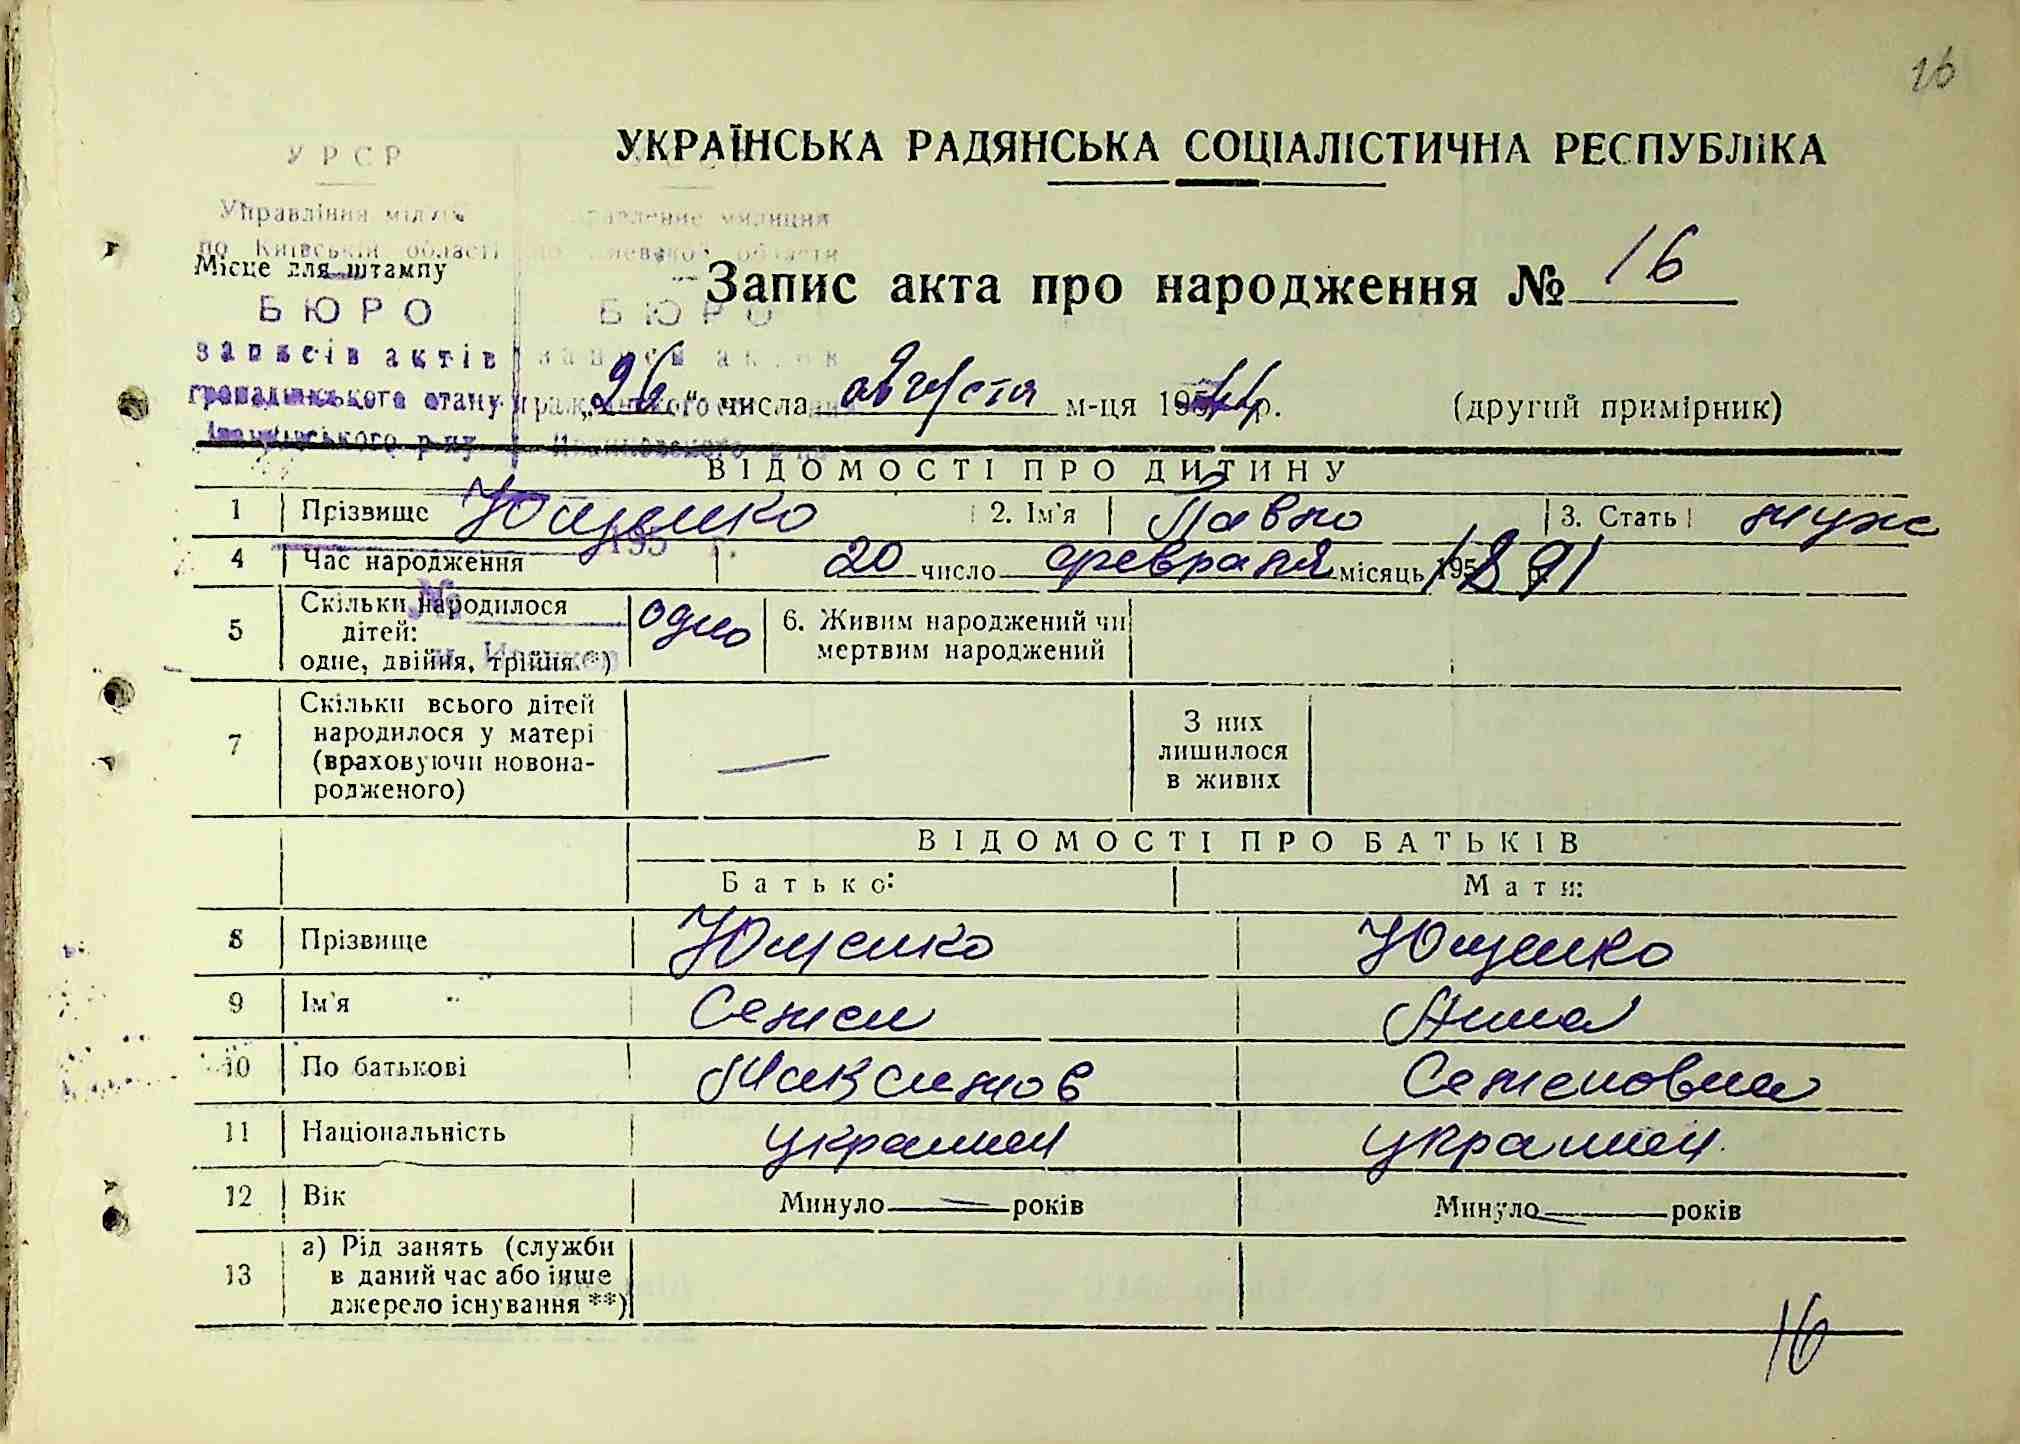 16
УКРАЇНСЬКА РАДЯНСЬКА СОЦІАЛІСТИЧНА РЕСПУБЛІКА
УРСР
Управління міліції
по Київській області
Місце для штампу
БЮРО
записів актів
громадянського стану
БЮРО
Запис акта про народження № 16
„26“ числа августа м-ця 195 р. (другий примірник)
ВІДОМОСТІ ПРО ДИТИНУ
1 Прізвище Ющенко 2. Ім'я Павло 3. Стать муж
4 Час народження 20 число февраля місяць 1891
5 Скільки народилося дітей: одне, двійня, трійня.*) одно 6. Живим народжений чи мертвим народжений
7 Скільки всього дітей народилося у матері (враховуючи новонародженого) — З них лишилося в живих
ВІДОМОСТІ ПРО БАТЬКІВ
Батько: Мати:
8 Прізвище Ющенко Ющенко
9 Ім'я Семен Анна
10 По батькові Максимов Семеновна
11 Національність украинец украинец
12 Вік Минуло — років Минуло — років
13 а) Рід занять (служби в даний час або інше джерело існування **)
16